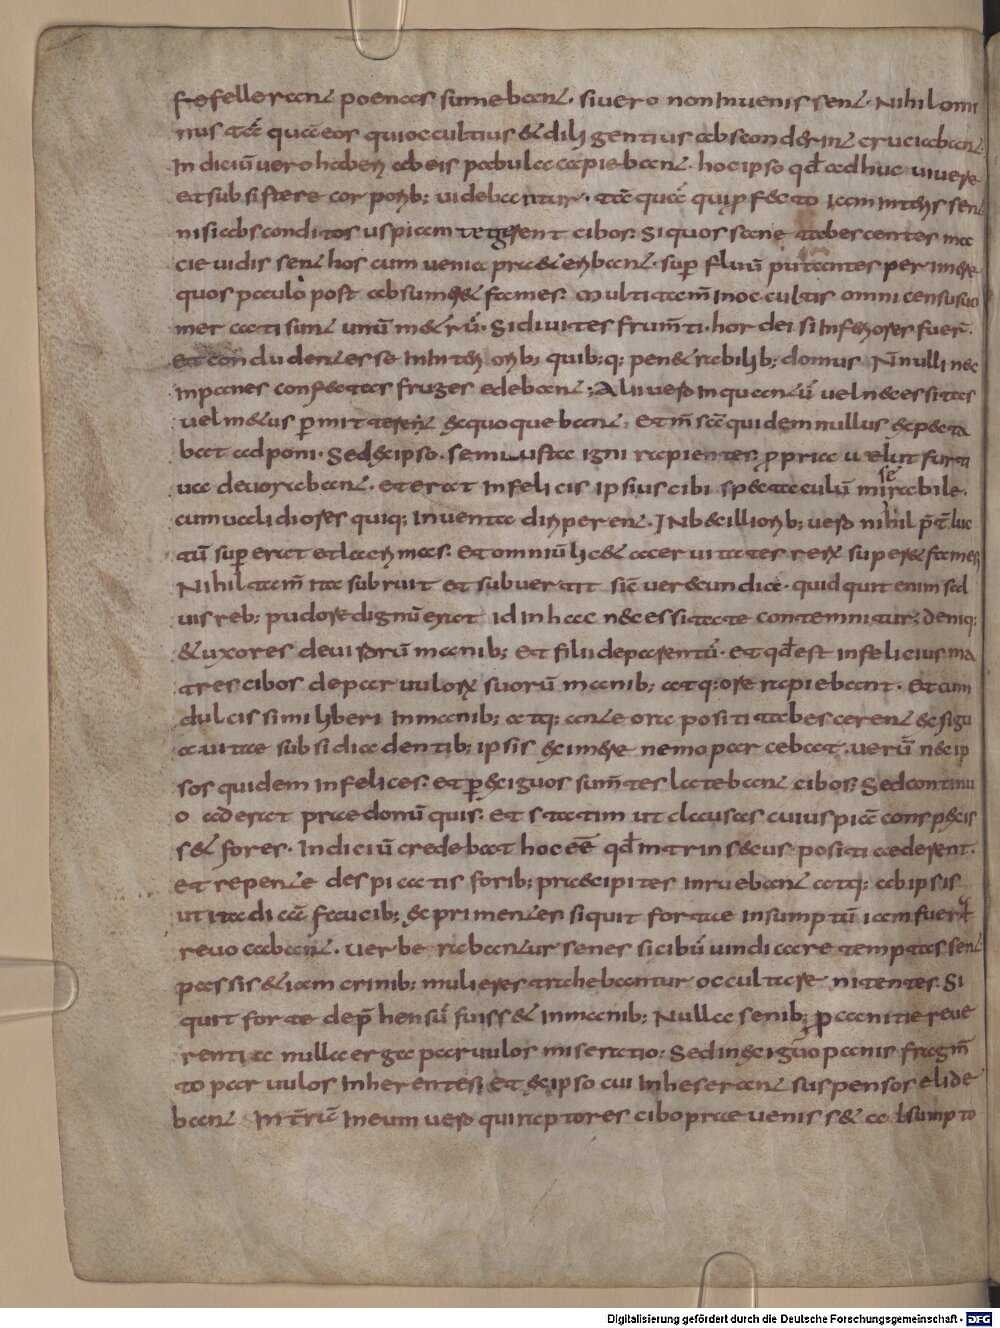 fefellerant poenas sumebant. si vero non invenissent. Nihilomi
nus tā quā eos qui occultius & diligentius abscondıssent cruciabant
Indiciū vero habendi ab eis pabula capiebant. hoc ipso qđ adhuc vivere
et subsistere corporib; videbantur. tā quā qui pfecto iam interissent
nisi absconditos uspiam tegerent cibos. Si quos sane tabescentes ma
cie vidissent hos cum venia praeteribant. superfluū putantes perimere
quos paulo post absumeret fames. Multi tam̄ in occultis omni censu suo
mercati sunt unū m&rū. Si divites frumti. hordei si inferiores fuer̄.
Et concludentes se in interiorib; quib;q; penetrabilib; domus N̄nulli nec
in panes confectas fruges edebant; Alii vero in quantū vel necessitas
vel m&us pmitterent excoquebant. Et m̄sā quidem nullus expecta
bat adponi. Sed ex ipso. semiustaa igni rapientes. ppria velut furti
va devorabant. et erat infelicis ipsius cibi spectaculū miserabile.
cum validiores quiq; inventa diriperent. Inbecilliorib; vero nihil p̄t luc
tū superesset et lacrimas. Et omniū lic& acervitates rerū superet fames
Nihil tam̄ ita subruit et subvertit sic̄ verecundia. quid quit enim sed
vis reb; pudore dignū erat id in hac necessitate contemnitur. deniq;
& uxores devirorū manib; et filii deparentū. et qđ est infelicius ma
tres cibos deparvulorū suorū manib; atq; ore rapiebant. Et cum
dulcissimi liberi in manib; atq; ante ora positi tabescerent exigu
a vitae subsidia dentib; ipsis eximere nemo parcebat. verū nec ip
sos quidem infelices. et p exiguos sum̄tes latebant cibos. Sed continu
o aderat praedonū quis. et statim ut clausas cuiuspiā conspexis
s& fores. Indiciū credebat hoc eē qđ intrinsecus positi ederent.
et repente despicatis forib; praecipites inruebant atq; ab ipsis
ut ita dicā faucib; exprimentes si quit forte insumptū iam fuerat
revocabant. Verberabantur senes si cibū vindicare temptassent
passis & iam crinib; mulieres trahebantur occultare nitentes. Si
quit forte dep̄hensū fuiss& in manib; Nulla senib; p canitie reve
rentia nulla erga parvulos miseratio. Sed in exiguo panis fragm̄
to parvulos inherentes. Et ex ipso cui inheserant suspensos elide
bant Int̄riū In eum vero qui raptores cibo praevenisset absumpto
Digitalisierung gefördert durch die Deutsche Forschungsgemeinschaft - DFG